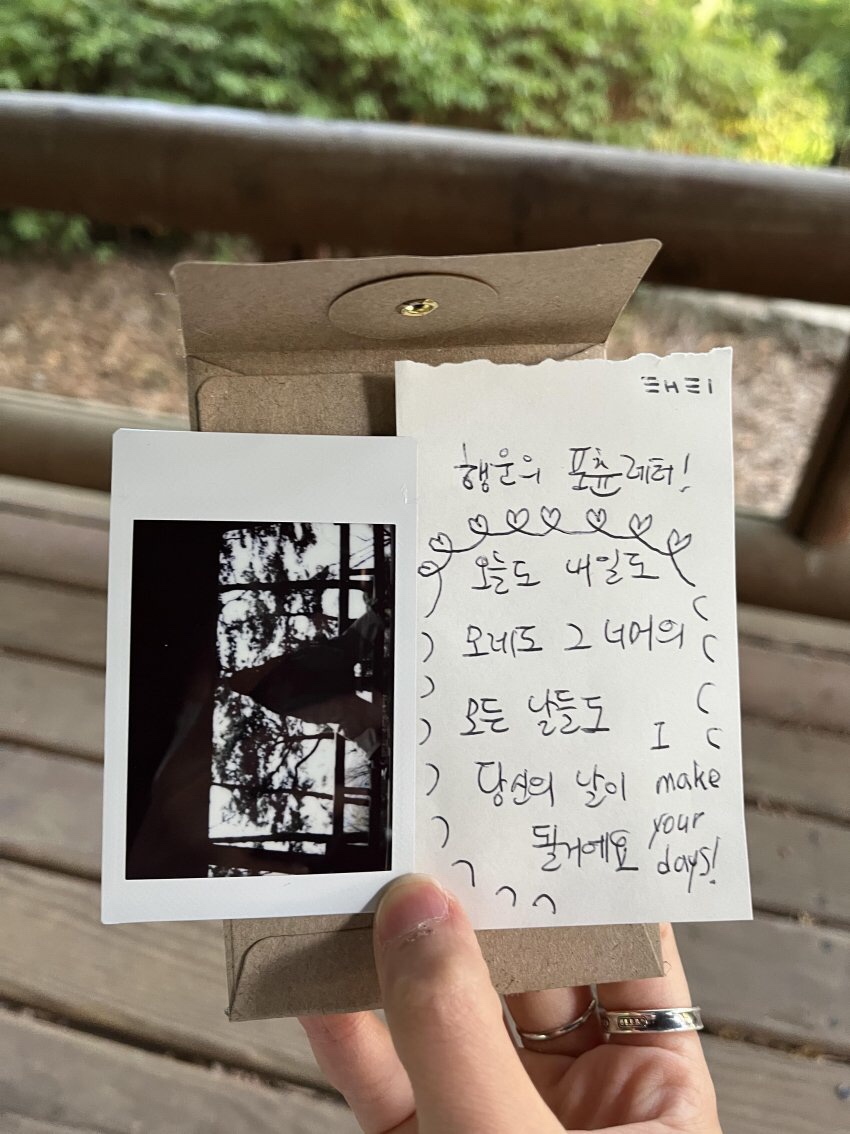 행운의 포츈레터!
오늘도 내일도
모레도 그 너머의
모든 날들도
당신의 날이
될거에요
I
make
your
days!